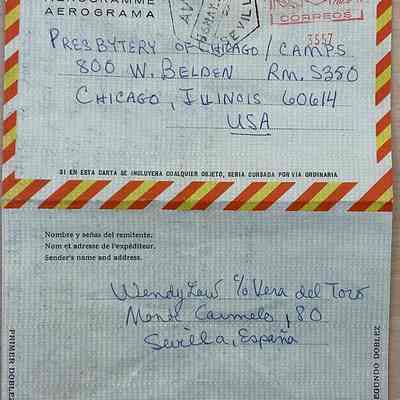 AEROGRAMME
AEROGRAMA
CORREOS
3557
PRESBYTERY OF CHICAGO / CAMPS
800 W. BELDEN RM. S350
CHICAGO, ILLINOIS 60614
USA
SI EN ESTA CARTA SE INCLUYERA CUALQUIER OBJETO, SERIA CURSADA POR VIA ORDINARIA
Nombre y señas del remitente.
Nom et adresse de l'expéditeur.
Sender's name and address.
Wendy Law c/o Vera del Toro
Monte Carmelo, 80
Sevilla, España
PRIMER DOBLEZ
SEGUNDO DOBLEZ